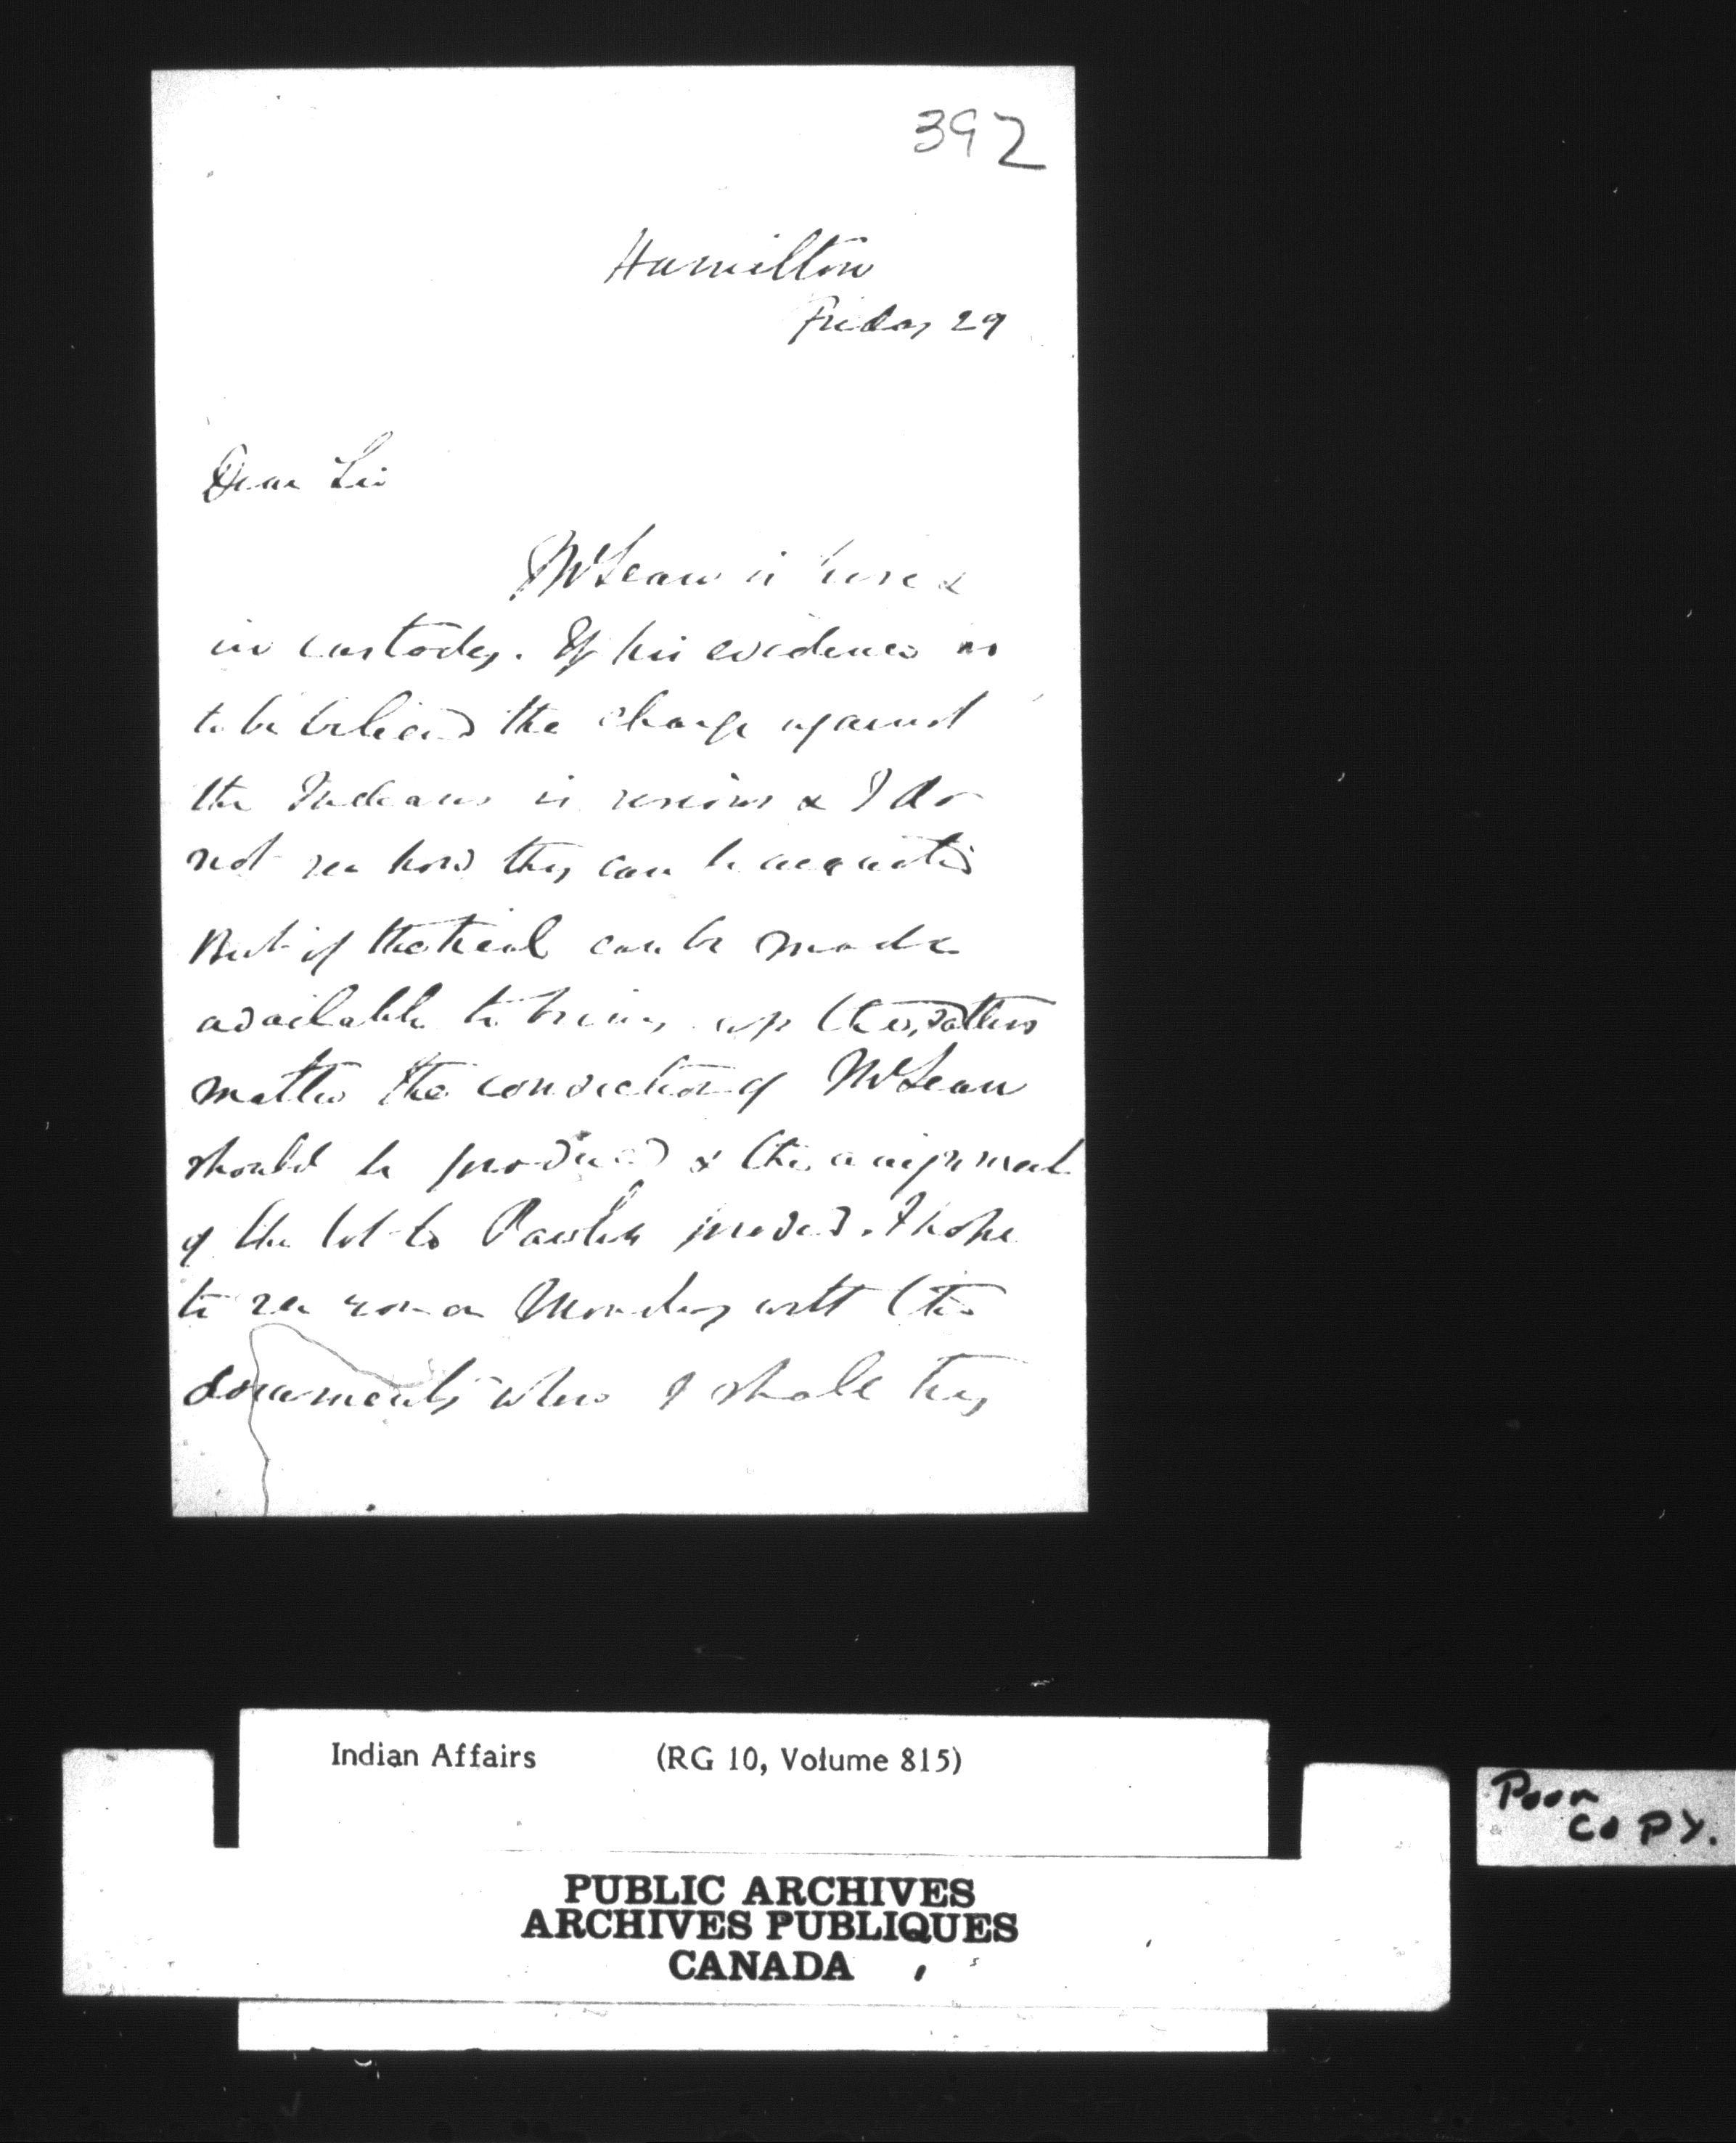 392
Hamilton
Friday 29
Dear Sir
McLean is here &
in custody. If his evidence is
to be believed the charge against
the Indians is serious & I do
not see how they can be acquitted
But if the trial can be made
available to bring up the
matter the conviction of McLean
should be produced & the assignment
of the lot to proved. I hope
to see you on Monday with the
documents when I shall try
Indian Affairs (RG 10, Volume 815)
PUBLIC ARCHIVES
ARCHIVES PUBLIQUES
CANADA
Poor
COPY.